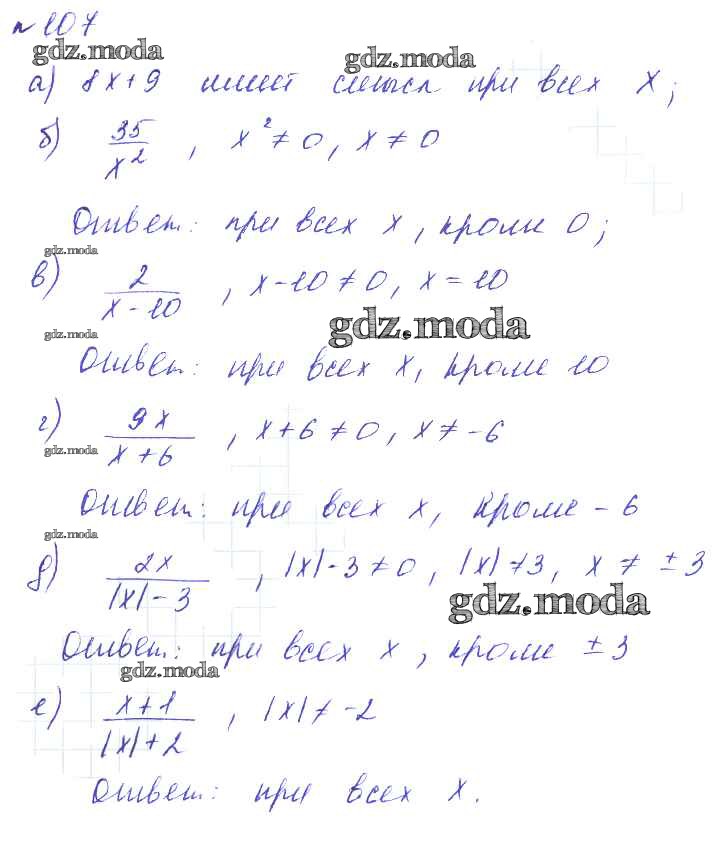 № 107
gdz.moda gdz.moda
а) 8x+9 имеет смысл при всех x;
б) 35/x², x² ≠ 0, x ≠ 0
Ответ: при всех x, кроме 0;
gdz.moda
в) 2/(x-10), x-10 ≠ 0, x = 10
gdz.moda gdz.moda
Ответ: при всех x, кроме 10
г) 9x/(x+6), x+6 ≠ 0, x ≠ -6
gdz.moda
Ответ: при всех x, кроме -6
gdz.moda
д) 2x/(|x|-3), |x|-3 ≠ 0, |x| ≠ 3, x ≠ ±3
gdz.moda
Ответ: при всех x, кроме ±3
gdz.moda
е) (x+1)/(|x|+2), |x| ≠ -2
Ответ: при всех x.